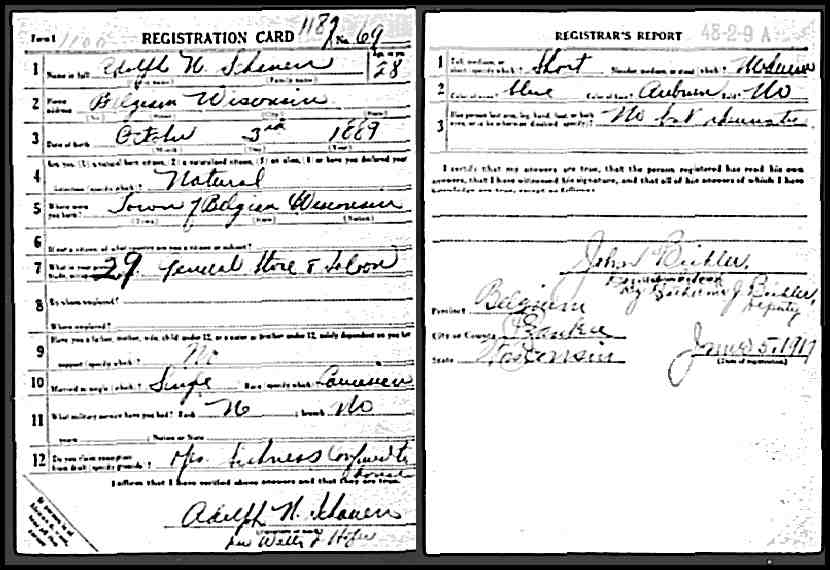 Form 1 1100 REGISTRATION CARD 1189 No. 69
1 Name in full Adolph N. Schauer Age, in yrs 28
(Given name) (Family name)
2 Home address Belgium Wisconsin
(No.) (Street) (City) (State)
3 Date of birth October 3rd 1889
(Month) (Day) (Year)
Are you (1) a natural born citizen, (2) a naturalized citizen, (3) an alien, (4) or have you declared your
4 intention (specify which)? Natural
5 Where were you born? Town of Belgium Wisconsin
(Town) (State) (Nation)
6 If not a citizen, of what country are you a citizen or subject?
7 What is your present 29 General Store & Saloon
8 By whom employed?
Where employed?
Have you a father, mother, wife, child under 12, or a sister or brother under 12, solely dependent on you for
9 support (specify which)? No
10 Married or single (which)? Single Race (specify which)? Caucasian
11 What military service have you had? Rank No ; branch No
years ; Nation or State
12 Do you claim exemption from draft (specify grounds)? Yes. Sickness Confined to
house
I affirm that I have verified above answers and that they are true.
Adolph N. Schauer
(Signature or mark)
REGISTRAR'S REPORT 48-2-9 A
1 Tall, medium, or short (specify which)? Short Slender, medium, or stout (which)? Medium
2 Color of eyes? Blue Color of hair? Auburn Bald? No
3 Has person lost arm, leg, hand, foot, or both eyes, or is he otherwise disabled (specify)? No but rheumatic
I certify that my answers are true, that the person registered has read his own
answers, that I have witnessed his signature, and that all of his answers of which I have
knowledge are true, except as follows:
John Bichler,
By Katherine J. Bichler,
Deputy
Precinct Belgium
City or County Ozaukee
State Wisconsin June 5, 1917
(Date of registration)